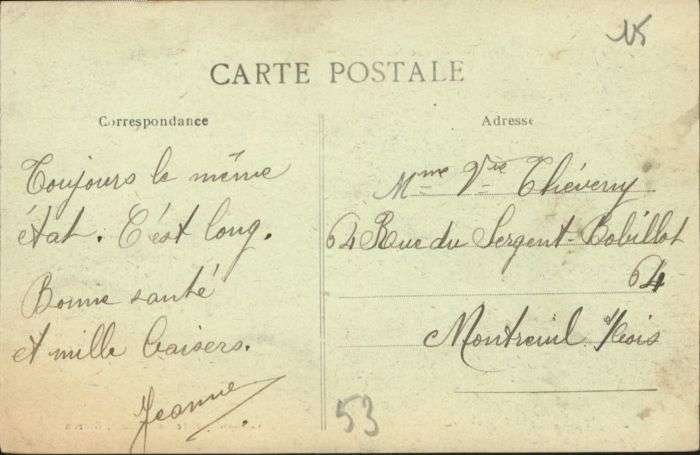 15
CARTE POSTALE
Correspondance
Toujours le même
état. C'est long.
Bonne santé
et mille baisers.
Jeanne
Adresse
Mme Vve Théveny
62 Rue du Sergent-Bobillot
64
Montreuil s/Bois
53